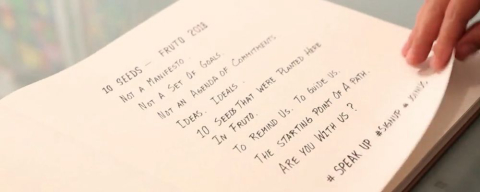 10 SEEDS — FRUTO 2018
NOT A MANIFESTO
NOT A SET OF GOALS
NOT AN AGENDA OF COMMITMENTS
IDEAS. IDEALS.
10 SEEDS THAT WERE PLANTED HERE
IN FRUTO.
TO REMIND US. TO GUIDE US.
THE STARTING POINT OF A PATH.
ARE YOU WITH US?
# SPEAK UP #SIGNUP #